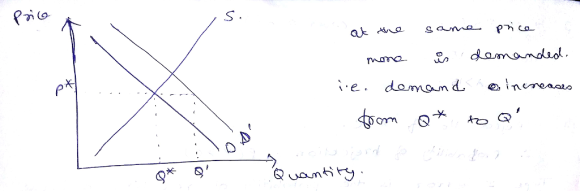 Price
S.
P*
D'
D
Q* Q'
Quantity.
at the same price
more is demanded.
i.e. demand increases
from Q* to Q'